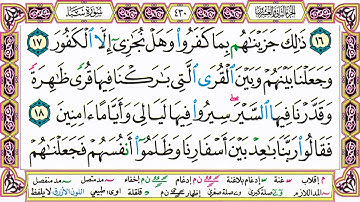 الجزء الثاني والعشرون ٤٣٠ سُورَةُ سَبَإٍ
١٦ ذَٰلِكَ جَزَيْنَٰهُم بِمَا كَفَرُوا۟ وَهَلْ نُجَٰزِىٓ إِلَّا ٱلْكَفُورَ ١٧
وَجَعَلْنَا بَيْنَهُمْ وَبَيْنَ ٱلْقُرَى ٱلَّتِى بَٰرَكْنَا فِيهَا قُرًى ظَٰهِرَةً
وَقَدَّرْنَا فِيهَا ٱلسَّيْرَ سِيرُوا۟ فِيهَا لَيَالِىَ وَأَيَّامًا ءَامِنِينَ ١٨
فَقَالُوا۟ رَبَّنَا بَٰعِدْ بَيْنَ أَسْفَارِنَا وَظَلَمُوٓا۟ أَنفُسَهُمْ فَجَعَلْنَٰهُمْ